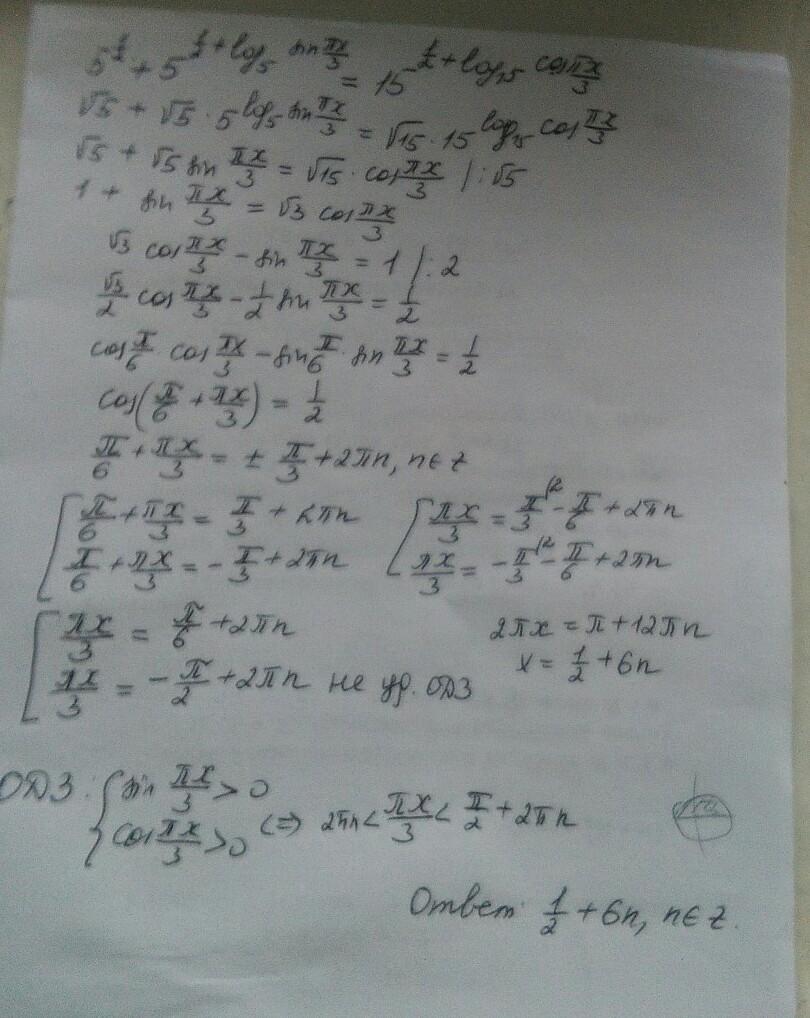 5^{1/2} + 5^{1/2 + log_5 sin πx/3} = 15^{1/2 + log_15 cos πx/3}
√5 + √5 · 5^{log_5 sin πx/3} = √15 · 15^{log_15 cos πx/3}
√5 + √5 sin πx/3 = √15 · cos πx/3 | : √5
1 + sin πx/3 = √3 cos πx/3
√3 cos πx/3 - sin πx/3 = 1 | : 2
√3/2 cos πx/3 - 1/2 sin πx/3 = 1/2
cos π/6 cos πx/3 - sin π/6 · sin πx/3 = 1/2
cos(π/6 + πx/3) = 1/2
π/6 + πx/3 = ± π/3 + 2πn, n∈z
[ π/6 + πx/3 = π/3 + 2πn
π/6 + πx/3 = - π/3 + 2πn
[ πx/3 = π/3^{\2} - π/6 + 2πn
πx/3 = - π/3^{\2} - π/6 + 2πn
[ πx/3 = π/6 + 2πn
πx/3 = - π/2 + 2πn не уд. ОДЗ
2πx = π + 12πn
x = 1/2 + 6n
ОДЗ: { sin πx/3 > 0
cos πx/3 > 0 <=> 2πn < πx/3 < π/2 + 2πn
Ответ: 1/2 + 6n, n∈z.